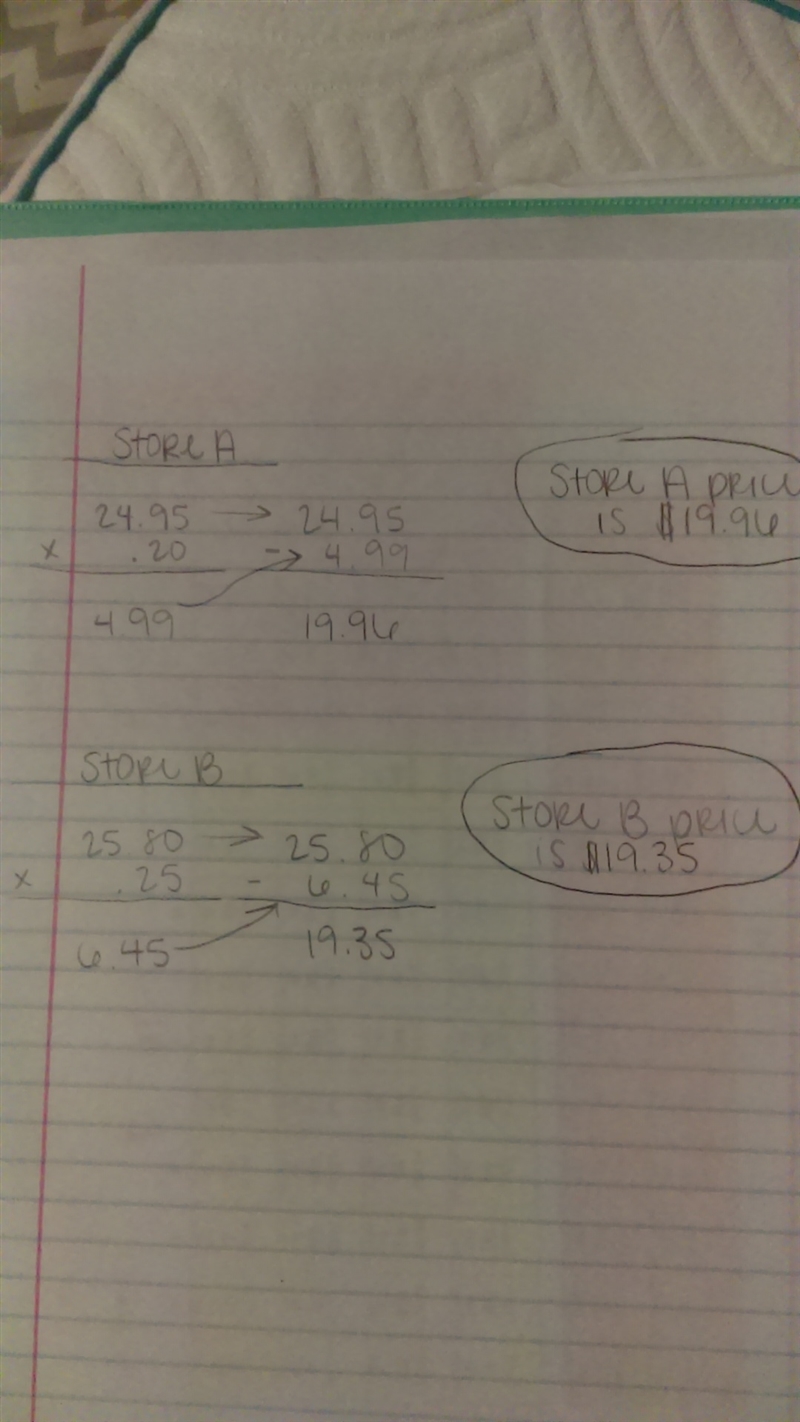 Store A
24.95 → 24.95
x .20 - → 4.99
4.99 19.96
Store A price
is $19.96
Store B
25.80 → 25.80
x .25 - 6.45
6.45 19.35
Store B price
is $19.35